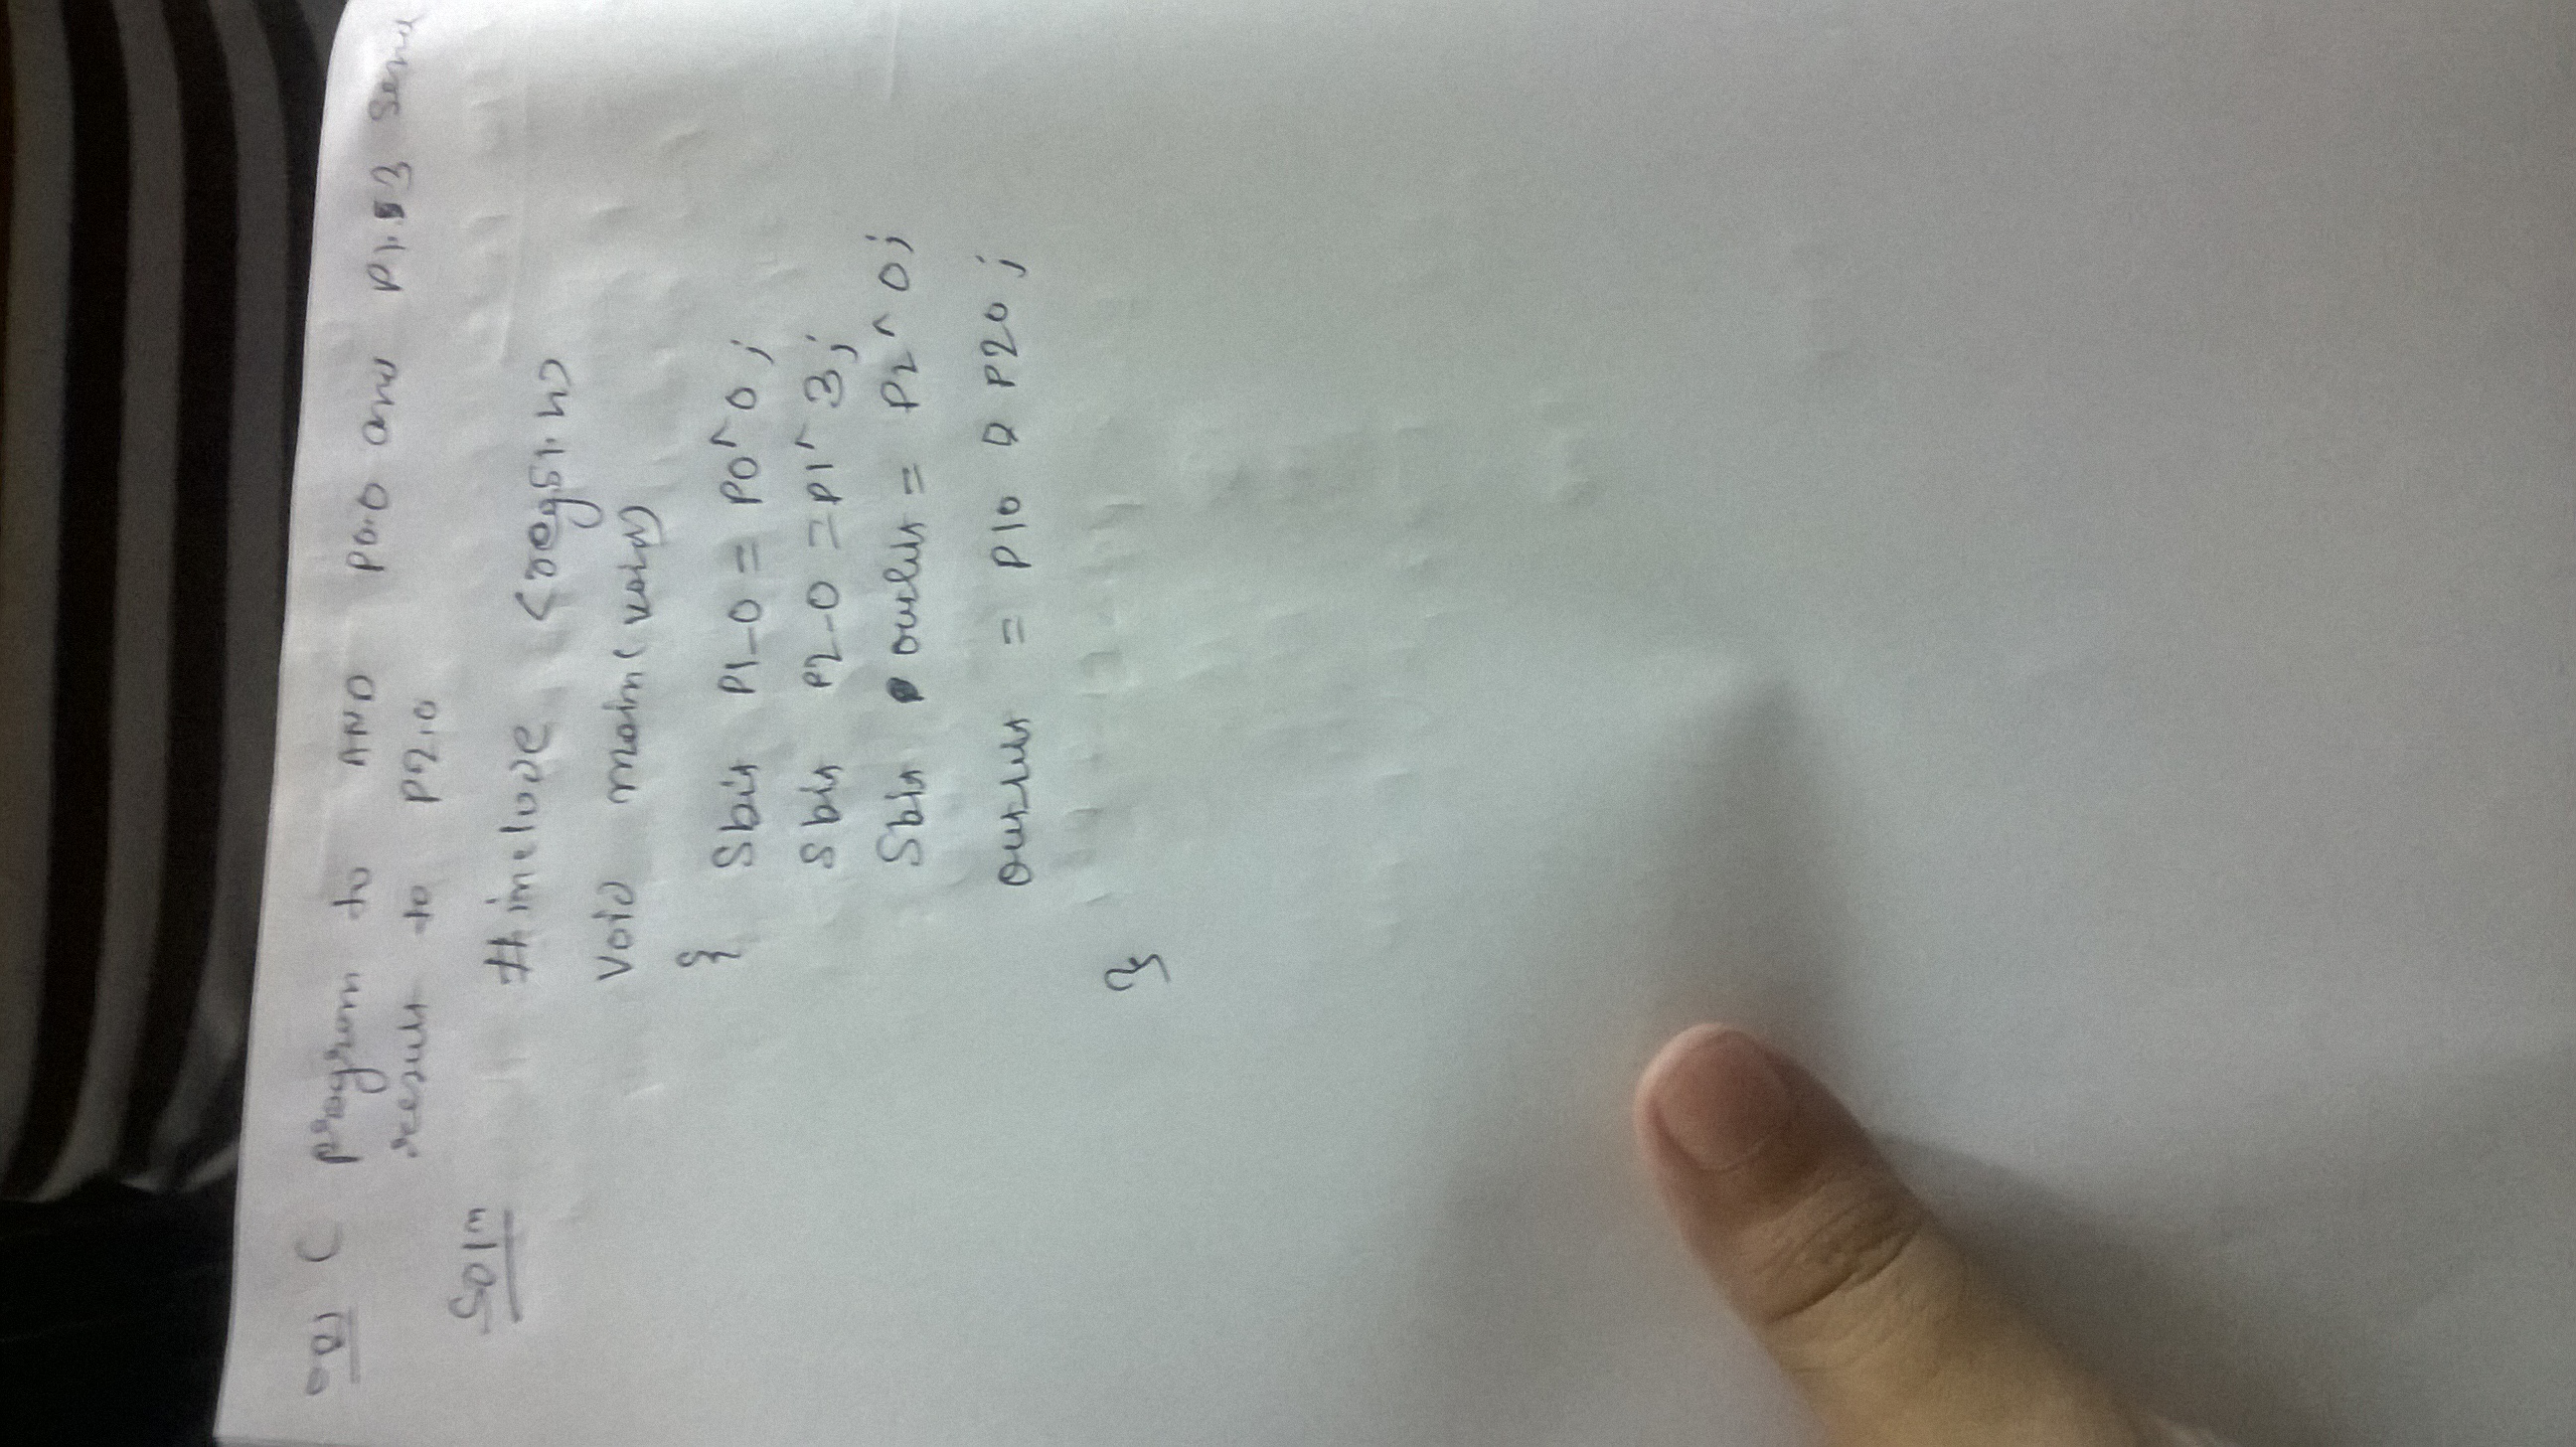 Q2) C program to AND P0.0 and P1.3 send
result to P2.0
Soln
#include <reg51.h>
void main(void)
{
Sbit P1_0 = P0^0;
Sbit P2_0 = P1^3;
Sbit output = P2^0;
output = P10 & P20;
}